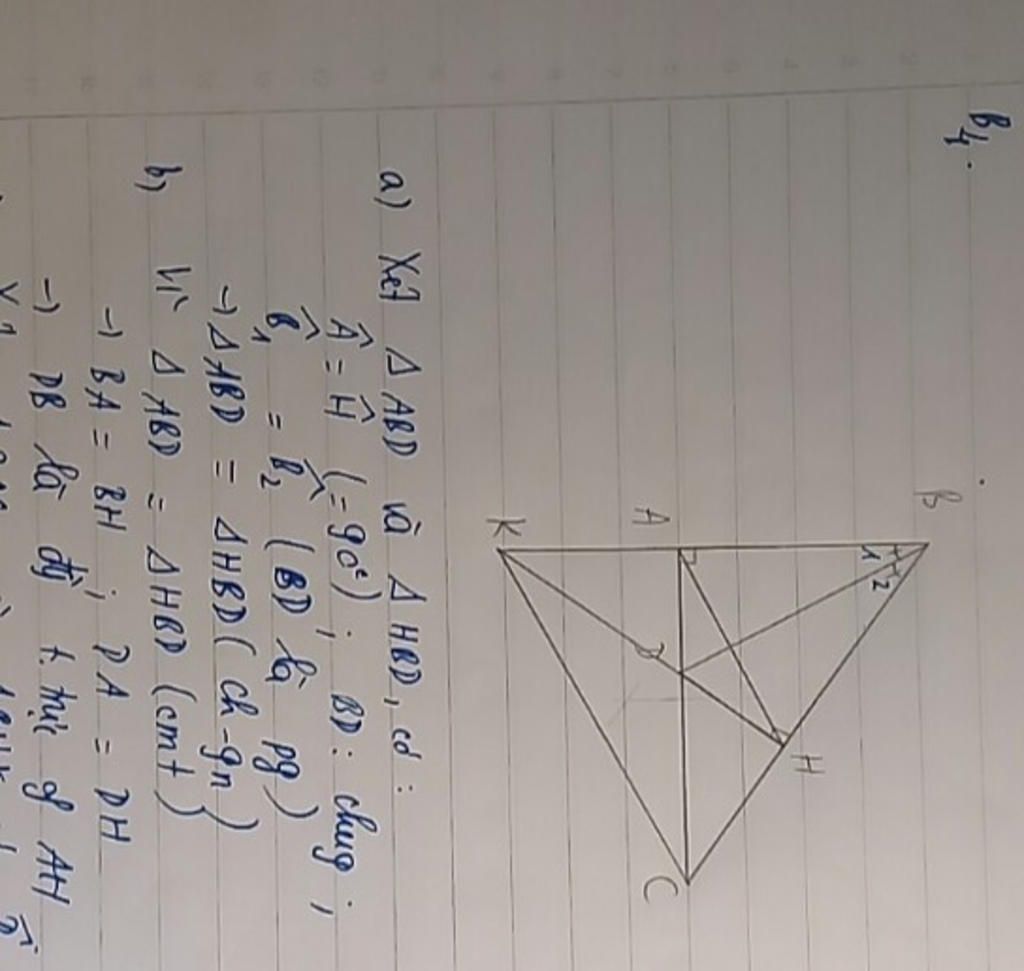 B4.
B
1 2
A
H
D
K
C
a) Xét Δ ABD và Δ HBD, có:
Â = Ĥ (= 90°); BD: chung;
B̂₁ = B̂₂ (BD là pg)
→ Δ ABD = Δ HBD (ch-gn)
b) Vì Δ ABD = Δ HBD (cmt)
→ BA = BH; DA = DH
→ DB là đg t. trực of AH